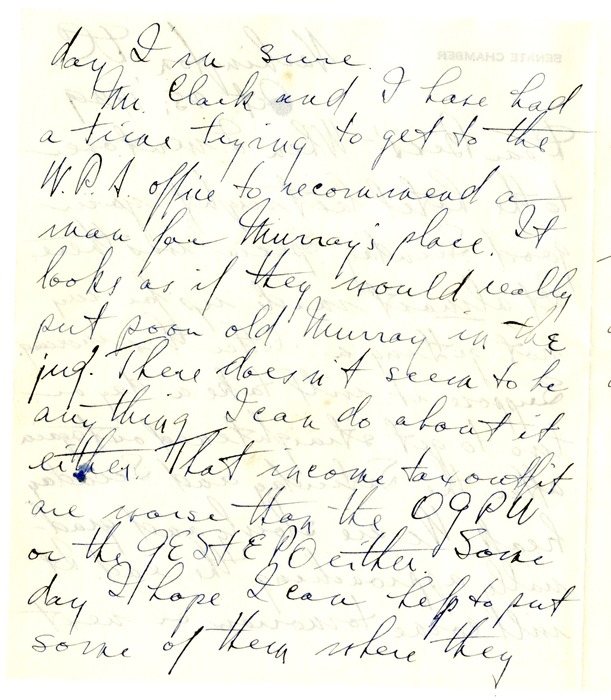 SENATE CHAMBER
day I'm sure.
Mr. Clark and I have had
a time trying to get to the
W.P.A. office to recommend a
man for Murray's place. It
looks as if they would really
put poor old Murray in the
jug. There doesn't seem to be
anything I can do about it
either. That income tax outfit
are worse than the OGPU
or the GESTEPO either. Some
day I hope I can help to put
some of them where they